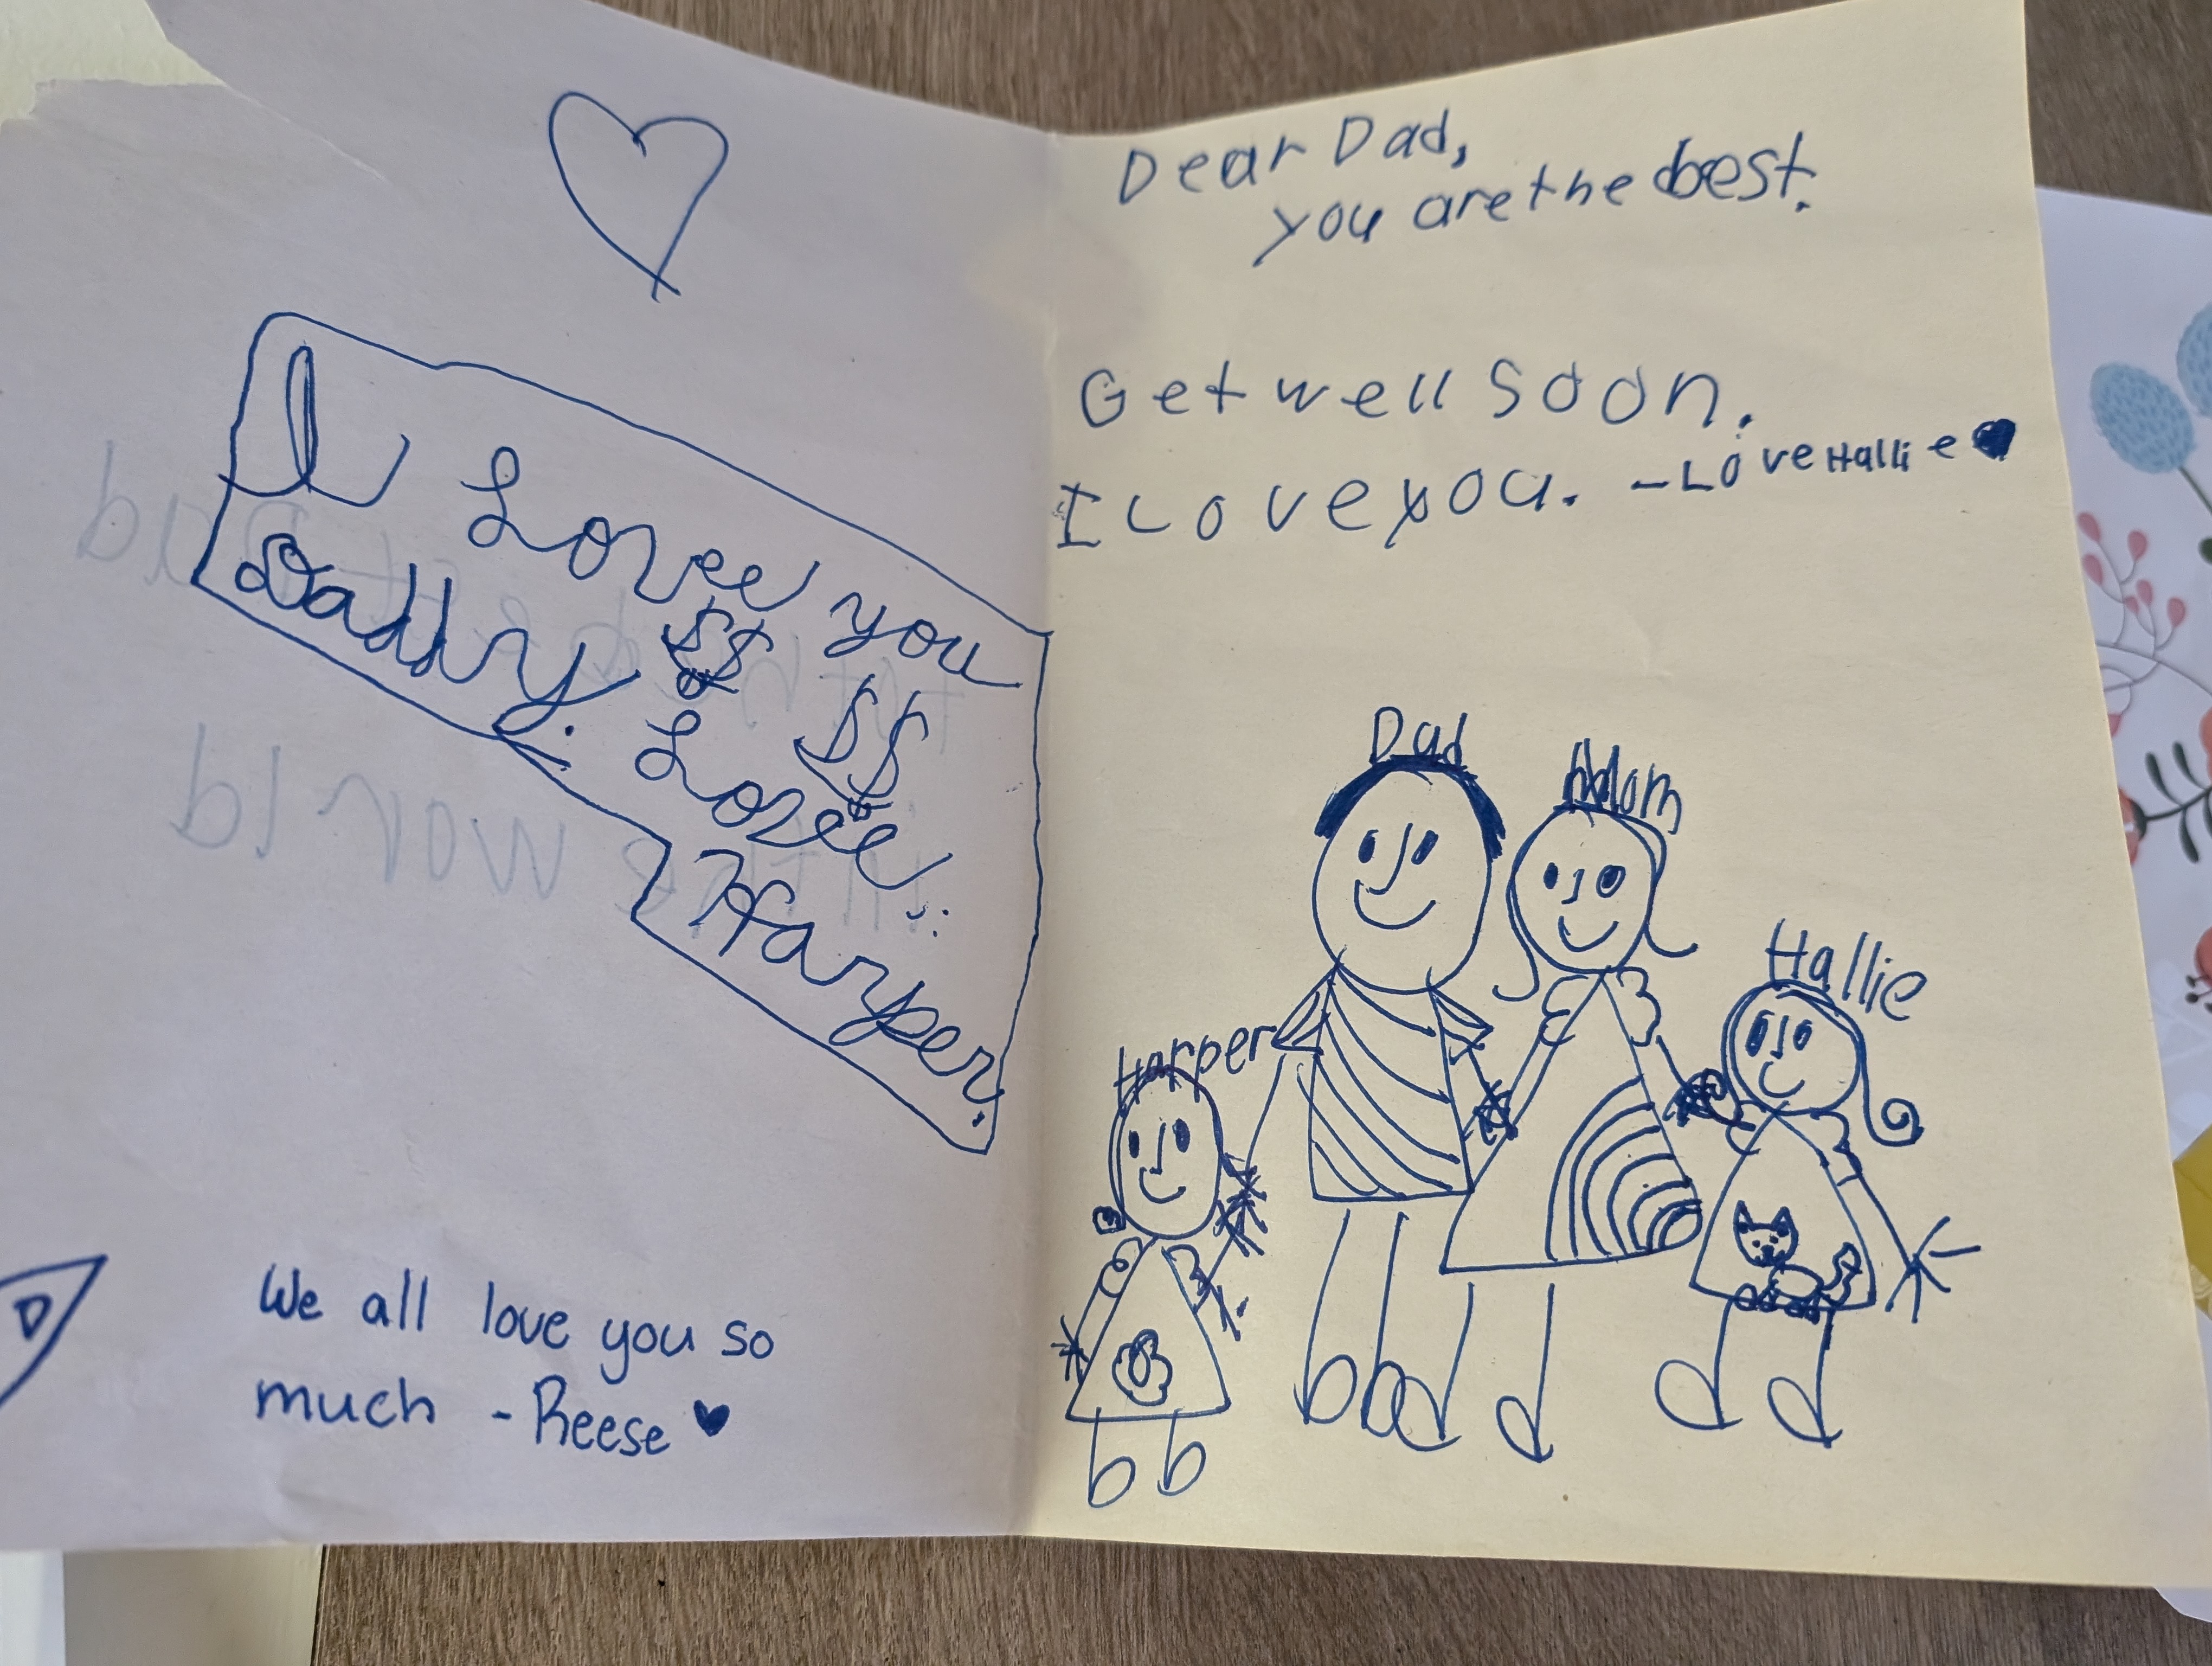 I Love you
Daddy. $$ $$
Love
Harper
We all love you so
much - Reese
Dear Dad,
you are the best.
Get well soon.
I Love you. - Love Hallie
Dad
Mom
Hallie
Harper